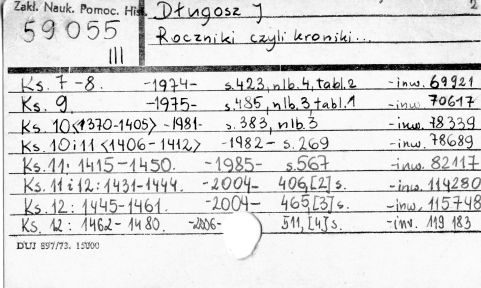 Zakł. Nauk. Pomoc. Hist.
59055
III
Długosz J
2
Roczniki czyli kroniki...
Ks. 7-8. -1974- s.423, nlb.4, tabl.2 -inw. 69921
Ks. 9. -1975- s.485, nlb.3, tabl.1 -inw. 70617
Ks. 10<1370-1405> -1981- s.383, nlb.3 -inw. 78339
Ks. 10i11<1406-1412> -1982- s.269 -inw. 78689
Ks. 11: 1415-1450. -1985- s.567 -inw. 82117
Ks. 11i12: 1431-1444. -2004- 406,[2]s. -inw. 114280
Ks. 12: 1445-1461. -2004- 465,[3]s. -inw. 115748
Ks. 12: 1462-1480. -2006- 511,[4]s. -inv. 119 183
DUJ 897/73. 15000